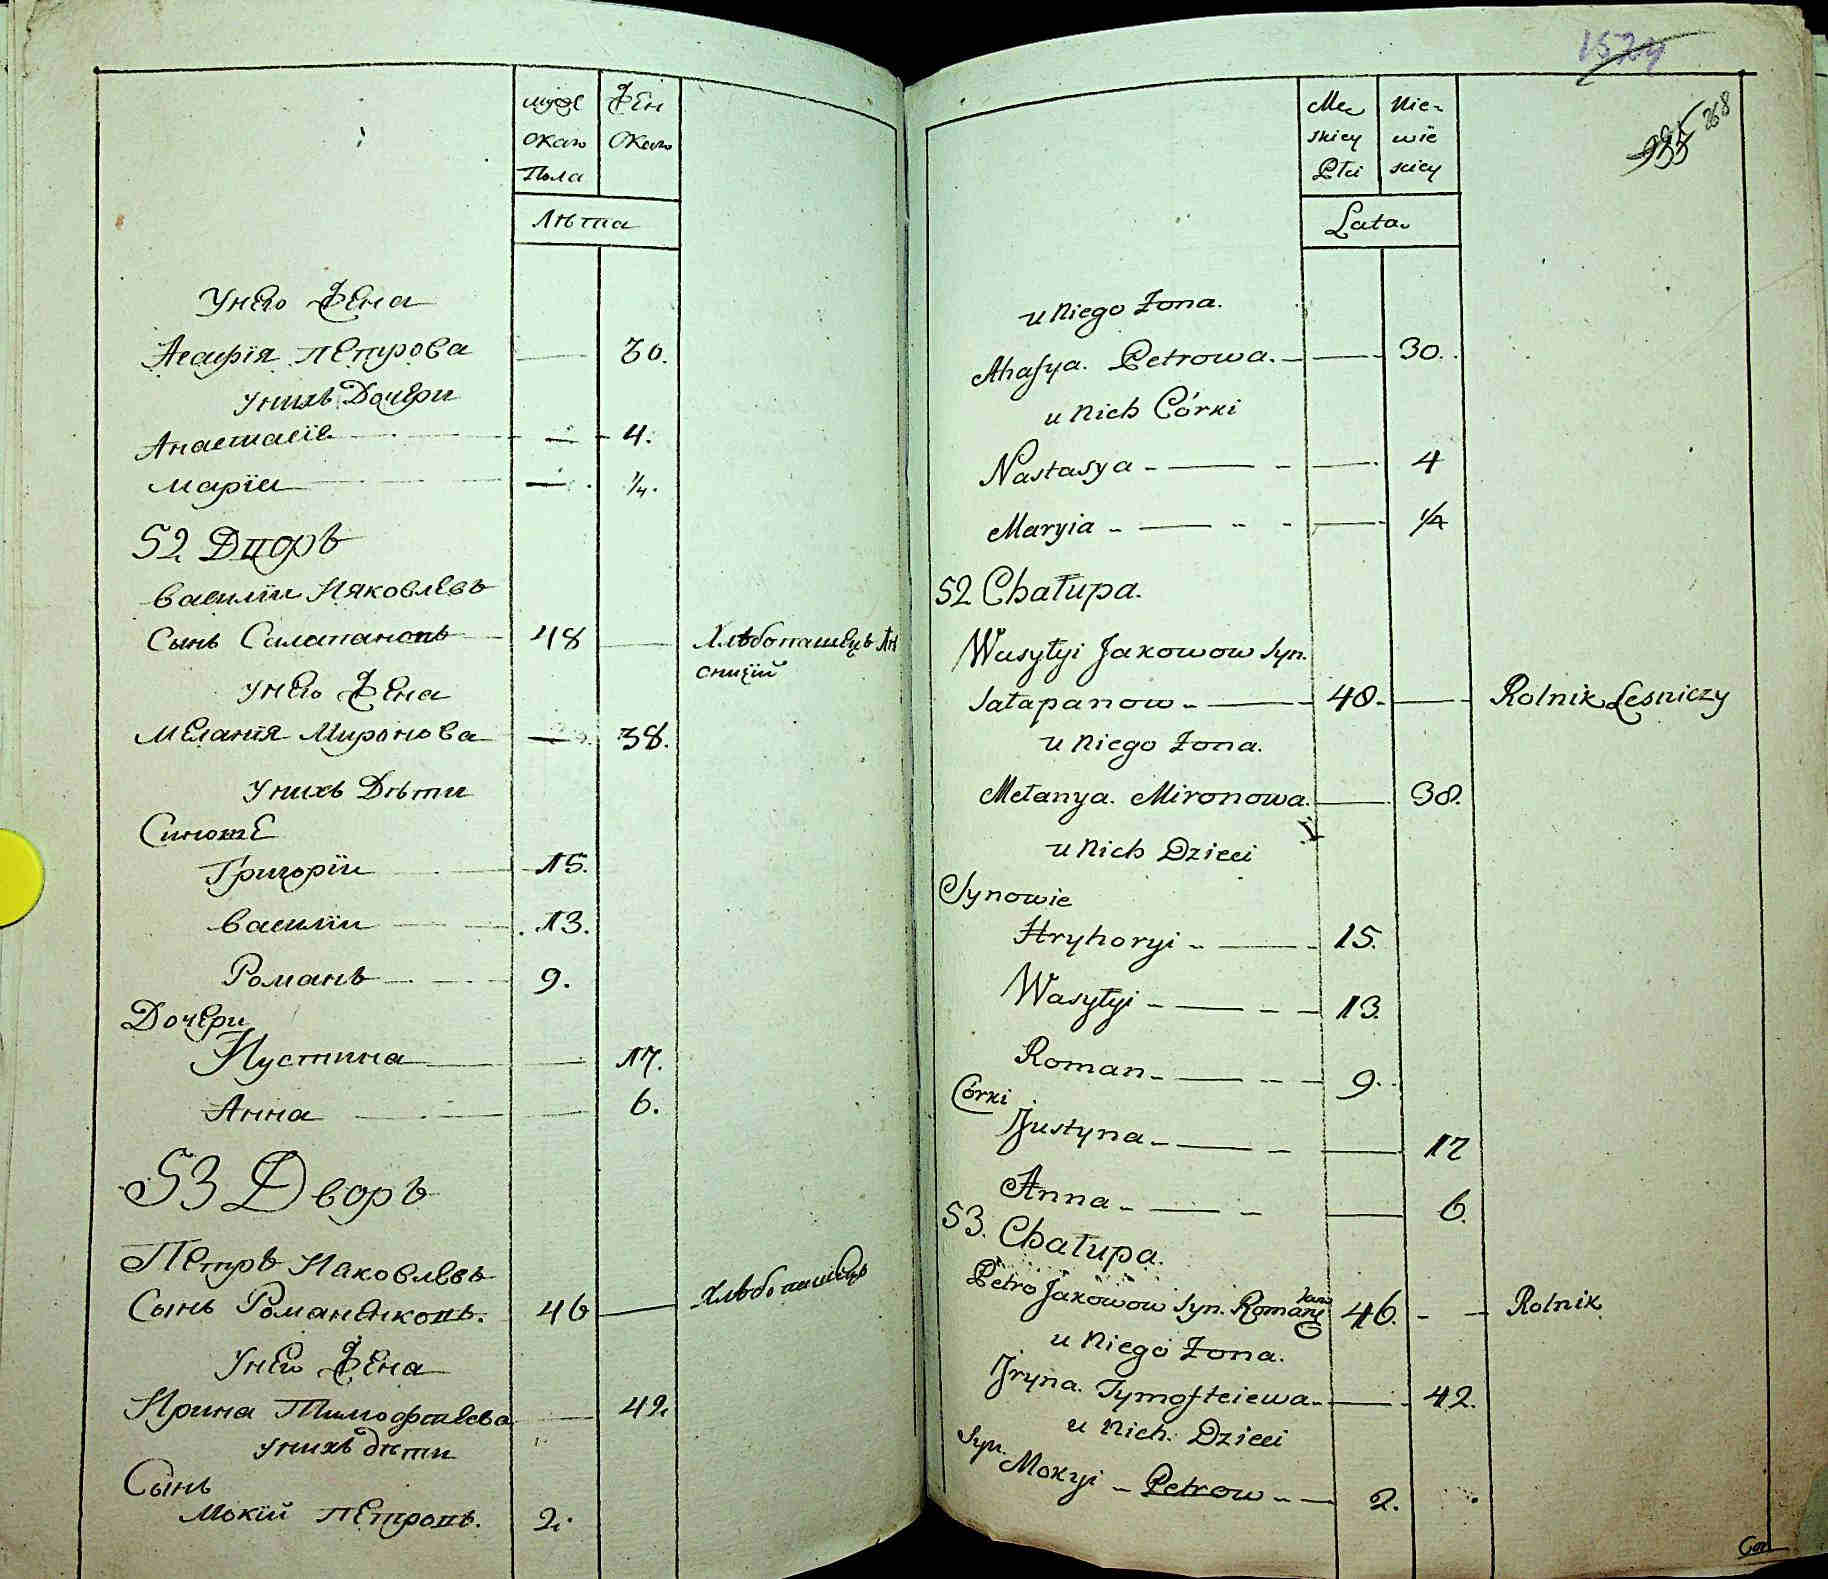 муже
ско͠го
Пола
Жен
ско͠го
Лѣта
У него Жена
Агафїя Петрова — 30.
У нихъ Дочери
Анастасїя — 4.
Марїа — ¼.
52 Дворъ
Василїи Ияковлевъ
Сынъ Салапановъ — 48 — Хлѣбопашецъ Лѣ
сничїй
У него Жена
Меланїя Миронова — 38.
У нихъ Дѣти
Синове
Григорїи — 15.
Василїи — 13.
Романъ — 9.
Дочери
Иустина — 17.
Анна — 6.
53 Дворъ
Петръ Иаковлевъ
Сынъ Романенковъ. 46 — Хлѣбопашецъ
У него Жена
Ирина Тимофтеева — 42.
У нихъ дѣти
Сынъ
Мокїй Петровъ. 2.
1524
935 268
Mę
skiey
Płci
Nie-
wie
sciey
Lata.
u Niego Żona.
Ahafya. Petrowa. — 30.
u Nich Córki
Nastasya — 4
Maryia — ¼
52 Chałupa.
Wasyłyi Jakowow Syn.
Sałapanow — 48. — Rolnik Lesniczy
u Niego Żona.
Mełanya. Mironowa. — 38.
u Nich Dzieci
Synowie
Hryhoryi — 15.
Wasyłyi — 13.
Roman — 9.
Córki
Justyna — 17
Anna — 6.
53. Chałupa.
Petro Jakowow Syn. Romany 46. — Rolnik
u Niego Żona.
Jryna. Tymofteiewa. — 42.
u Nich. Dzieci
Syn.
Mokyi — Petrow — 2.